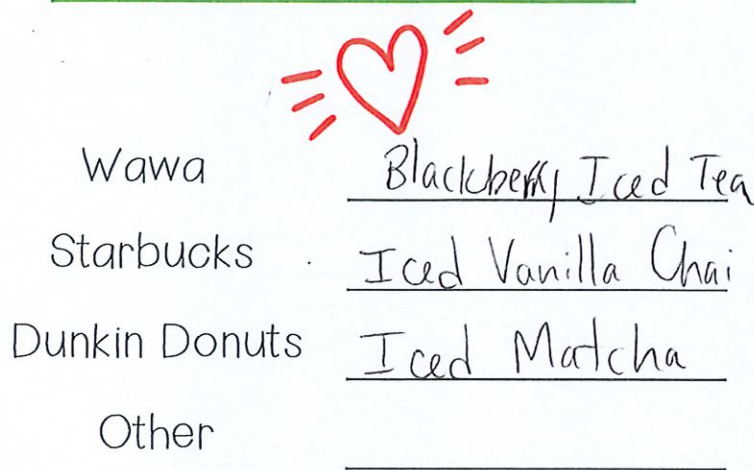 Wawa Blackberry Iced Tea
Starbucks Iced Vanilla Chai
Dunkin Donuts Iced Matcha
Other